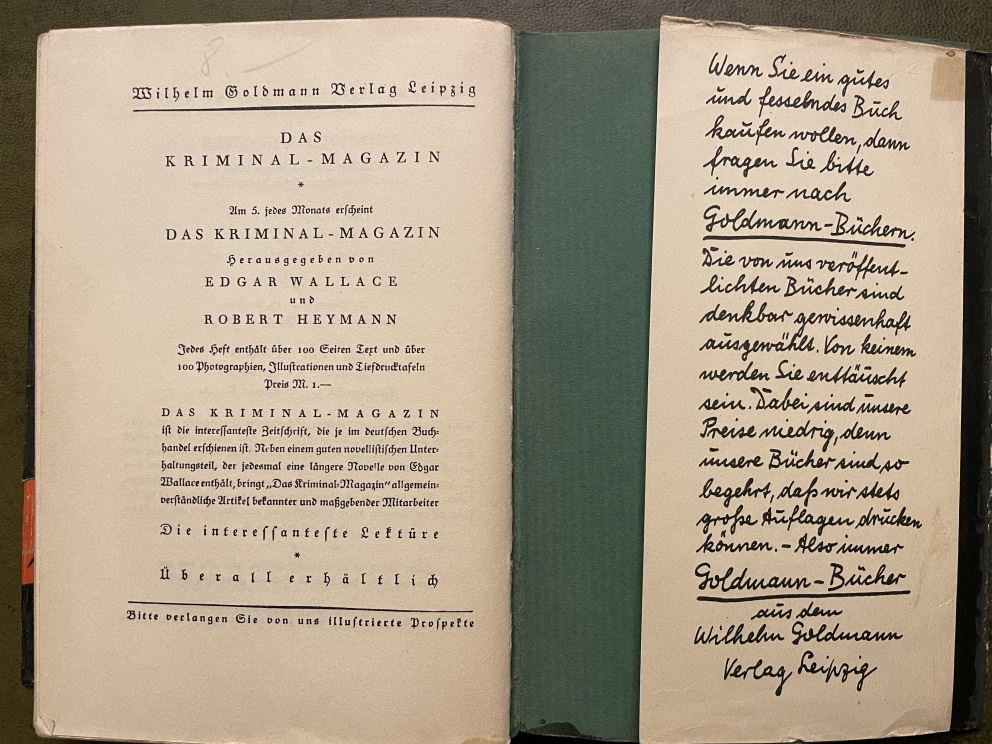 8.—
Wilhelm Goldmann Verlag Leipzig
DAS
KRIMINAL-MAGAZIN
*
Am 5. jedes Monats erscheint
DAS KRIMINAL-MAGAZIN
Herausgegeben von
EDGAR WALLACE
und
ROBERT HEYMANN
Jedes Heft enthält über 100 Seiten Text und über
100 Photographien, Illustrationen und Tiefdrucktafeln
Preis M. 1.—
DAS KRIMINAL-MAGAZIN
ist die interessanteste Zeitschrift, die je im deutschen Buch-
handel erschienen ist. Neben einem guten novellistischen Unter-
haltungsteil, der jedesmal eine längere Novelle von Edgar
Wallace enthält, bringt „Das Kriminal-Magazin“ allgemein-
verständliche Artikel bekannter und maßgebender Mitarbeiter
Die interessanteste Lektüre
*
Überall erhältlich
Bitte verlangen Sie von uns illustrierte Prospekte
Wenn Sie ein gutes
und fesselndes Buch
kaufen wollen, dann
fragen Sie bitte
immer nach
Goldmann-Büchern.
Die von uns veröffent-
lichten Bücher sind
denkbar gewissenhaft
ausgewählt. Von keinem
werden Sie enttäuscht
sein. Dabei sind unsere
Preise niedrig, denn
unsere Bücher sind so
begehrt, daß wir stets
große Auflagen drucken
können. – Also immer
Goldmann-Bücher
aus dem
Wilhelm Goldmann
Verlag Leipzig